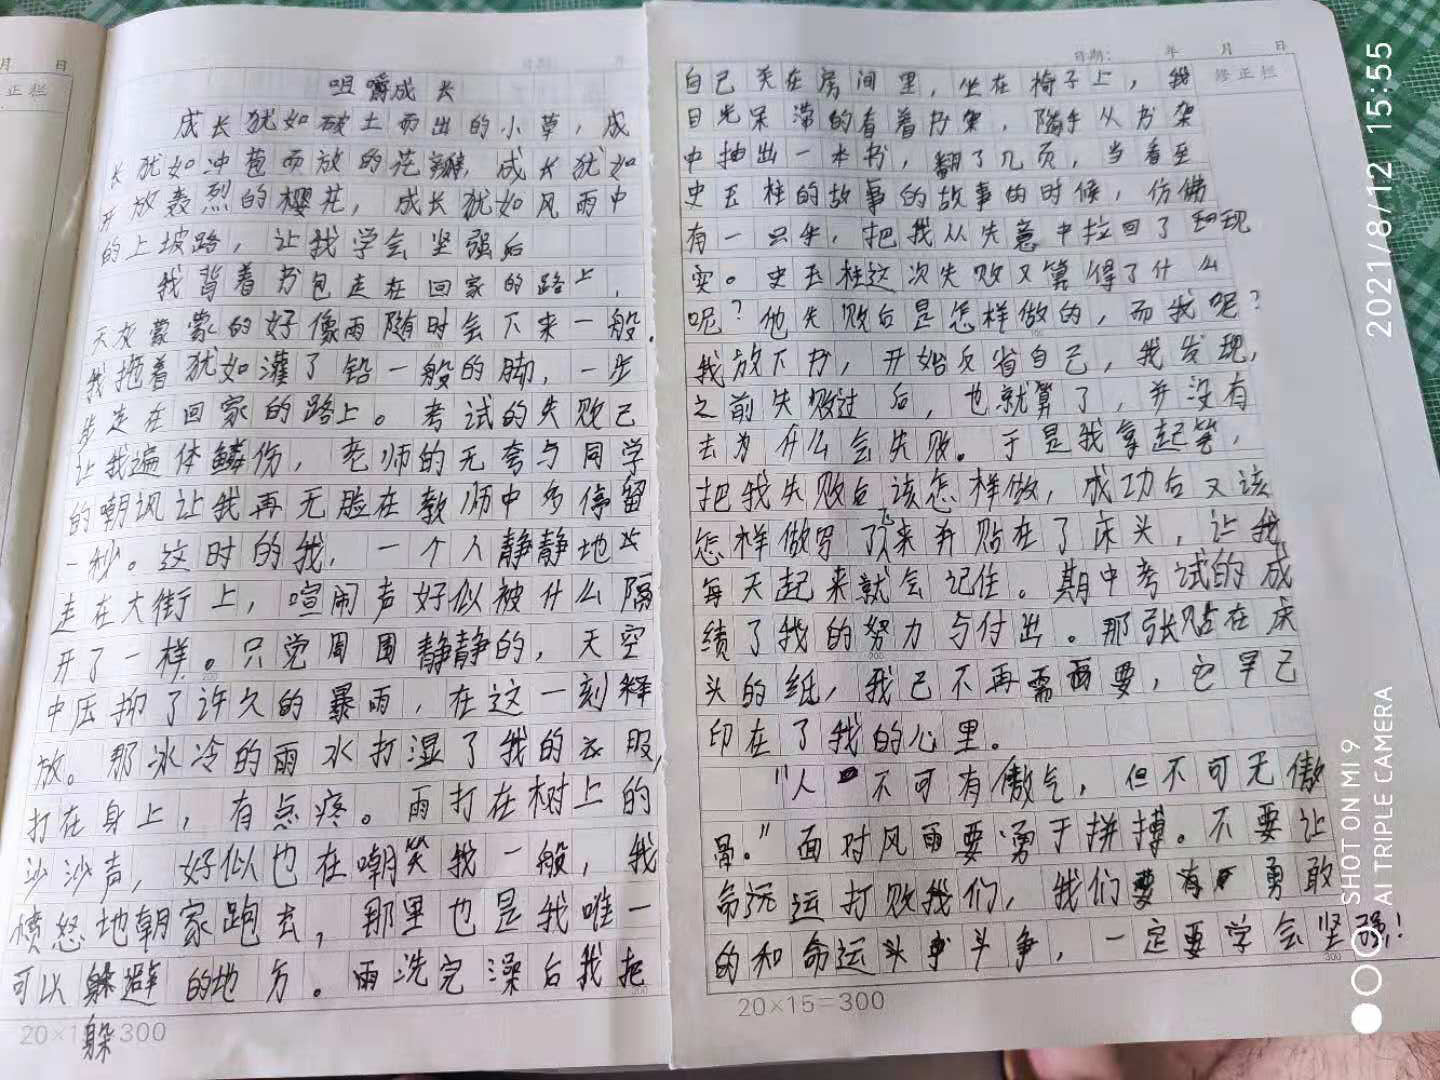 月 日
正栏
咀嚼成长
成长犹如破土而出的小草，成
长犹如冲苞而放的花瓣，成长犹如
开放轰烈的樱花，成长犹如风雨中
的上坡路，让我学会坚强后
我背着书包走在回家的路上，
天灰蒙蒙的好像雨随时会下来一般．
我拖着犹如灌了铅一般的脚，一步
步走在回家的路上。考试的失败已
让我遍体鳞伤，老师的无夸与同学
的嘲讽让我再无脸在教师中多停留
一秒。这时的我，一个人静静地
走在大街上，喧闹声好似被什么隔
开了一样。只觉周围静静的，天空
中压抑了许久的暴雨，在这一刻释
放。那冰冷的雨水打湿了我的衣服，
打在身上，有点疼。雨打在树上的
沙沙声，好似也在嘲笑我一般，我
愤怒地朝家跑去，那里也是我唯一
可以躲避的地方。雨洗完澡后我把
躲
20×15=300
日期： 年 月 日
修正栏
自己关在房间里，坐在椅子上，我
目光呆滞的看着书架，随手从书架
中抽出一本书，翻了几页，当看至
史玉柱的故事的故事的时候，仿佛
有一只手，把我从失意中拉回了现
实。史玉柱这次失败又算得了什么
呢？他失败后是怎样做的，而我呢？
我放下书，开始反省自己，我发现，
之前失败过后，也就算了，并没有
去为什么会失败。于是我拿起笔，
把我失败后该怎样做，成功后又该
怎样做写了下来并贴在了床头，让我
每天起来就会记住。期中考试的成
绩了我的努力与付出。那张贴在床
头的纸，我已不再需要，它早已
印在了我的心里。
“人不可有傲气，但不可无傲
骨。”面对风雨要勇于拼搏。不要让
命运打败我们，我们要有勇敢
的和命运斗争，一定要学会坚强！
20×15=300
2021/8/12 15:55
SHOT ON MI 9
AI TRIPLE CAMERA